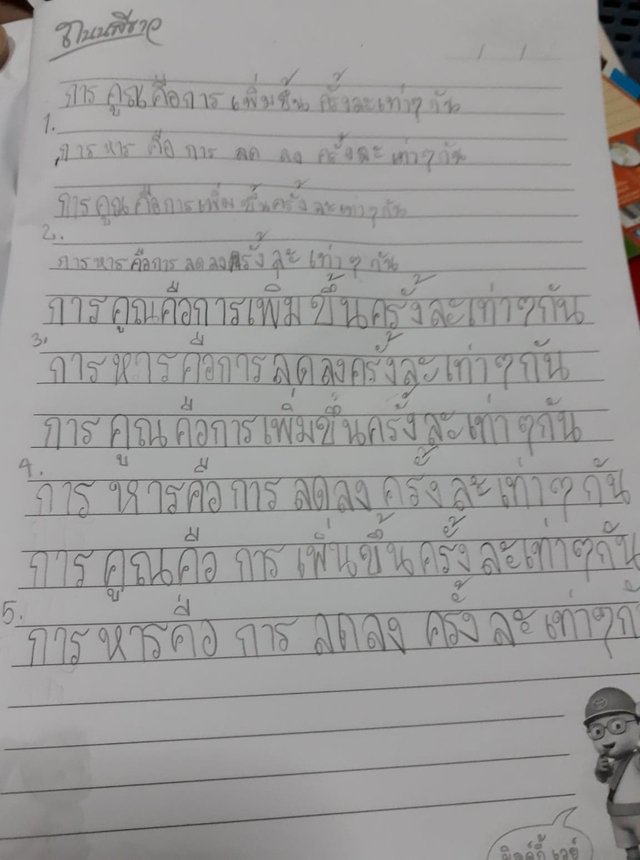 การคูณคือการเพิ่มขึ้นครั้งละเท่าๆกัน
1.
การ หาร คือ การ ลด ลง ครั้งละ เท่าๆกัน
การคูณคือการเพิ่มขึ้นครั้งละเท่าๆกัน
2.
การหารคือการลดลงครั้ง ละ เท่าๆ กัน
การคูณคือการเพิ่มขึ้นครั้งละเท่าๆกัน
3.
การหารคือการลดลงครั้งละเท่าๆกัน
การ คูณ คือการเพิ่มขึ้นครั้งละเท่าๆกัน
4.
การ หารคือ การ ลดลง ครั้งละเท่าๆ กัน
การ คูณคือ การ เพิ่นขึ้นครั้งละเท่าๆกัน
5.
การ หารคือ การ ลดลง ครั้ง ละ เท่าๆกั